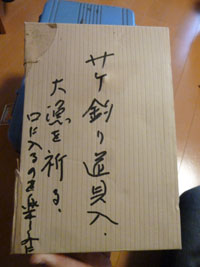 サケ釣り道具入.
大漁を祈る.
口に入るのを楽しみ